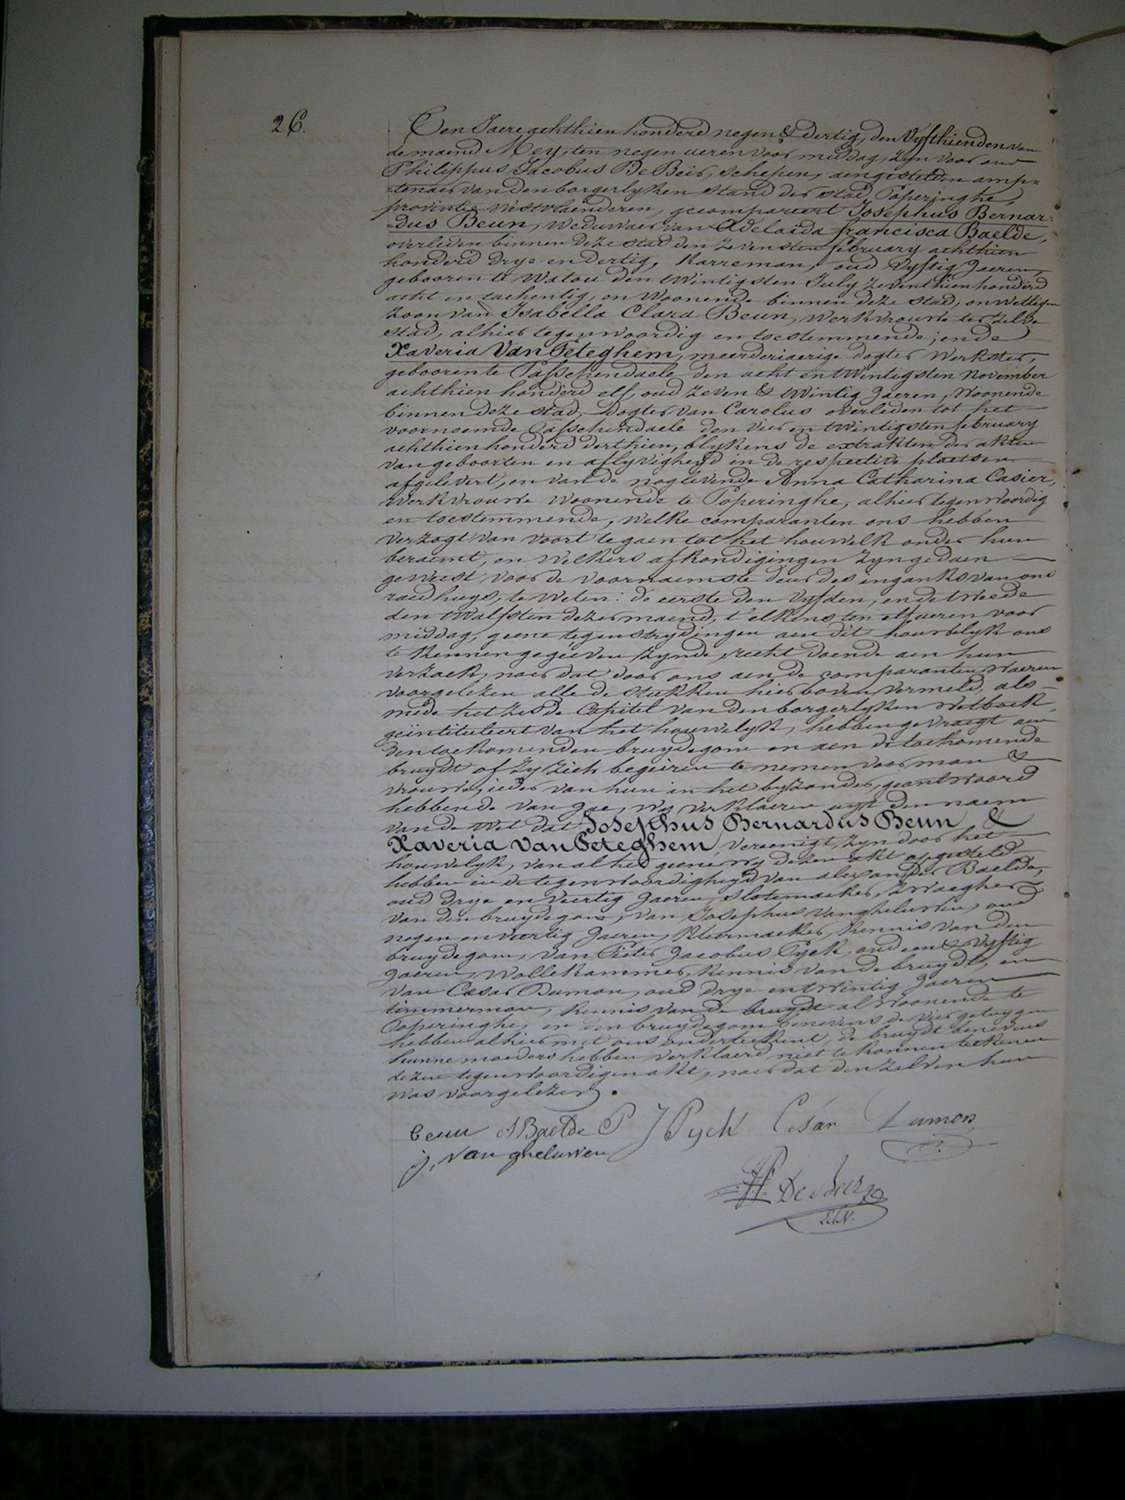 26.
Den Jaere achthien honderd negen & dertig, den Vyfthienden van
de maend Mey, ten negen ueren voor middag, zyn voor ons
Philippus Jacobus De Beir, schepen, aengestelden amp-
tenaer van den borgerlyken stand der stad Poperinghe,
provintie Westvlaenderen, gecompareert Josephus Bernar-
dus Beun, Weduwaer van Adelaida francisca Baelde,
overleden binnen deze stad den zevensten february achthien
honderd drye en dertig, Karreman, oud Vyftig Jaeren,
geboren te Watou den twintigsten July zeventhien honderd
acht en tachentig, en Woonende binnen deze stad, onwettigen
zoon van Isabella Clara Beun, Werkvrouwe ter zelve
stad, alhier tegenwoordig en toestemmende; ende
Xaveria Van Peteghem, meerderjaerige dogter Werkster,
geboren te Passchendaele den acht en twintigsten November
achthien honderd elf, oud zeven & twintig Jaeren, Woonende
binnen deze stad, Dogter van Carolus overleden tot het
voornoemde Passchendaele den vier en twintigsten february
achthien honderd derthien, blykens de extrakten der akten
van geboorten en aflyvigheyd in de respective plaetsen
afgelevert, en van de noglevende Anna Catharina Casier,
Werkvrouwe Woonende te Poperinghe, alhier tegenwoordig
en toestemmende, welke comparanten ons hebben
verzogt van voort te gaen tot het houwelk onder hun
beraemt, en welkers afkondigingen zyn gedaen
geweest voor de voornaemste deur des ingangs van ons
raedhuys, te Weten: de eerste den Vyfden, en de tweede
den twalfsten dezer maend, t'elkens ten elf ueren voor
middag, geene tegenstrydingen aen dit houwelyk ons
te kennen gegeven zynde, recht doende aen hun
verzoek, naer dat door ons aen de comparanten Waeren
voorgelezen alle de stukken hierboven vermeld, als-
mede het zesde Capitel van den borgerlyken Wetboek,
geintituleert van het houwelyk, hebben gevraegt aen
den toekomenden bruydegom en aen de toekomende
bruydt of zy zich begeiren te nemen voor man &
vrouwe, ieder van hun in het byzonder geantwoord
hebbende van Jae, Wy verklaeren uyt den naem
van de Wet dat Josephus Bernardus Beun, &
Xaveria Van Peteghem vereenigt zyn door het
houwelyk, van al het geene wy dezen akt opgesteld
hebben in de tegenwoordigheyd van Alexander Baelde,
oud drye en veertig Jaeren, Slotemaeker, zwaegher
van den bruydegom, van Josephus Vangheluwen, oud
negen en veertig Jaeren, Kleermaeker, kennis van den
bruydegom, van Pieter Jacobus Pyck, oud een & vyftig
Jaeren, Wollekammer, kennis van de bruydt, en
van Cesar Dumon, oud drye en twintig Jaeren
timmerman, kennis van de bruydt al Woonende te
Poperinghe, en den bruydegom benevens de vier getuygen
hebben alhier met ons onderteekent, de bruydt benevens
hunne moeders hebben verklaerd niet te konnen teekenen
dezen tegenwoordigen akt, naer dat den zelven hun
was voorgelezen.
beun A Baelde P J Pyck César Dumon
j. Van gheluwen